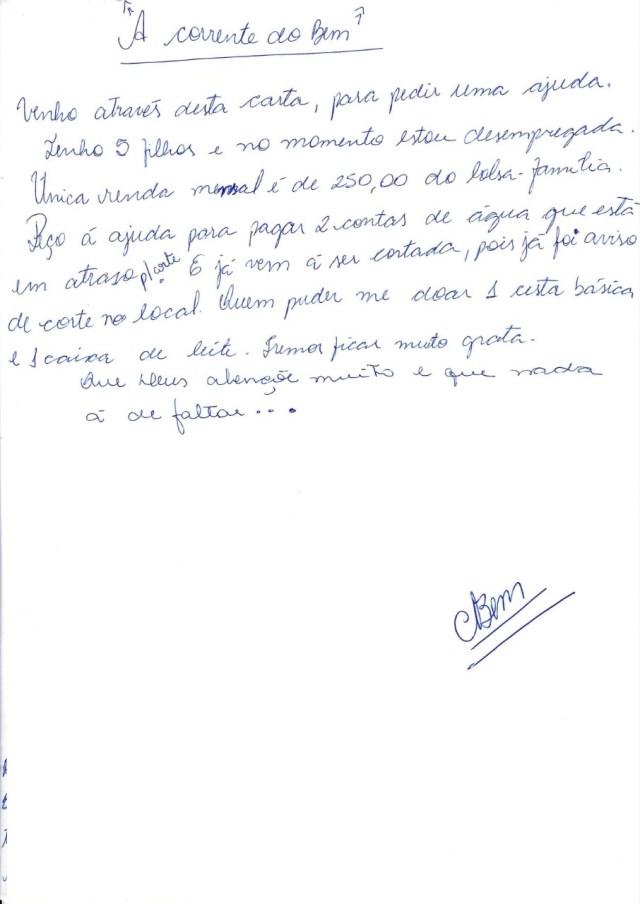 "A corrente do Bem"
Venho através desta carta, para pedir uma ajuda.
Tenho 5 filhos e no momento estou desempregada.
Única renda mensal é de 250,00 do bolsa-família.
Peço á ajuda para pagar 2 contas de água que está
em atraso p/corte. E já vem á ser cortada, pois já foi aviso
de corte no local. Quem puder me doar 1 cesta básica
e 1 caixa de leite. Iremos ficar muito grata.
Que Deus abençõe muito e que nada
á de faltar...
Bem